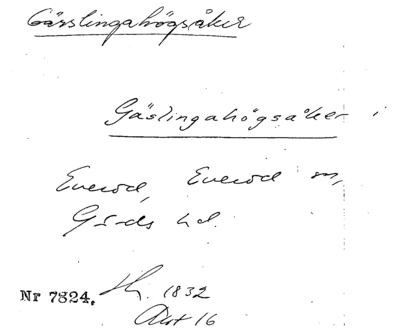 Gässlingahögsåker
Gäslingahögsåker i
Everöd, Everöd sn,
Gärds hd.
Nr 7824. Lh. 1832
Akt 16